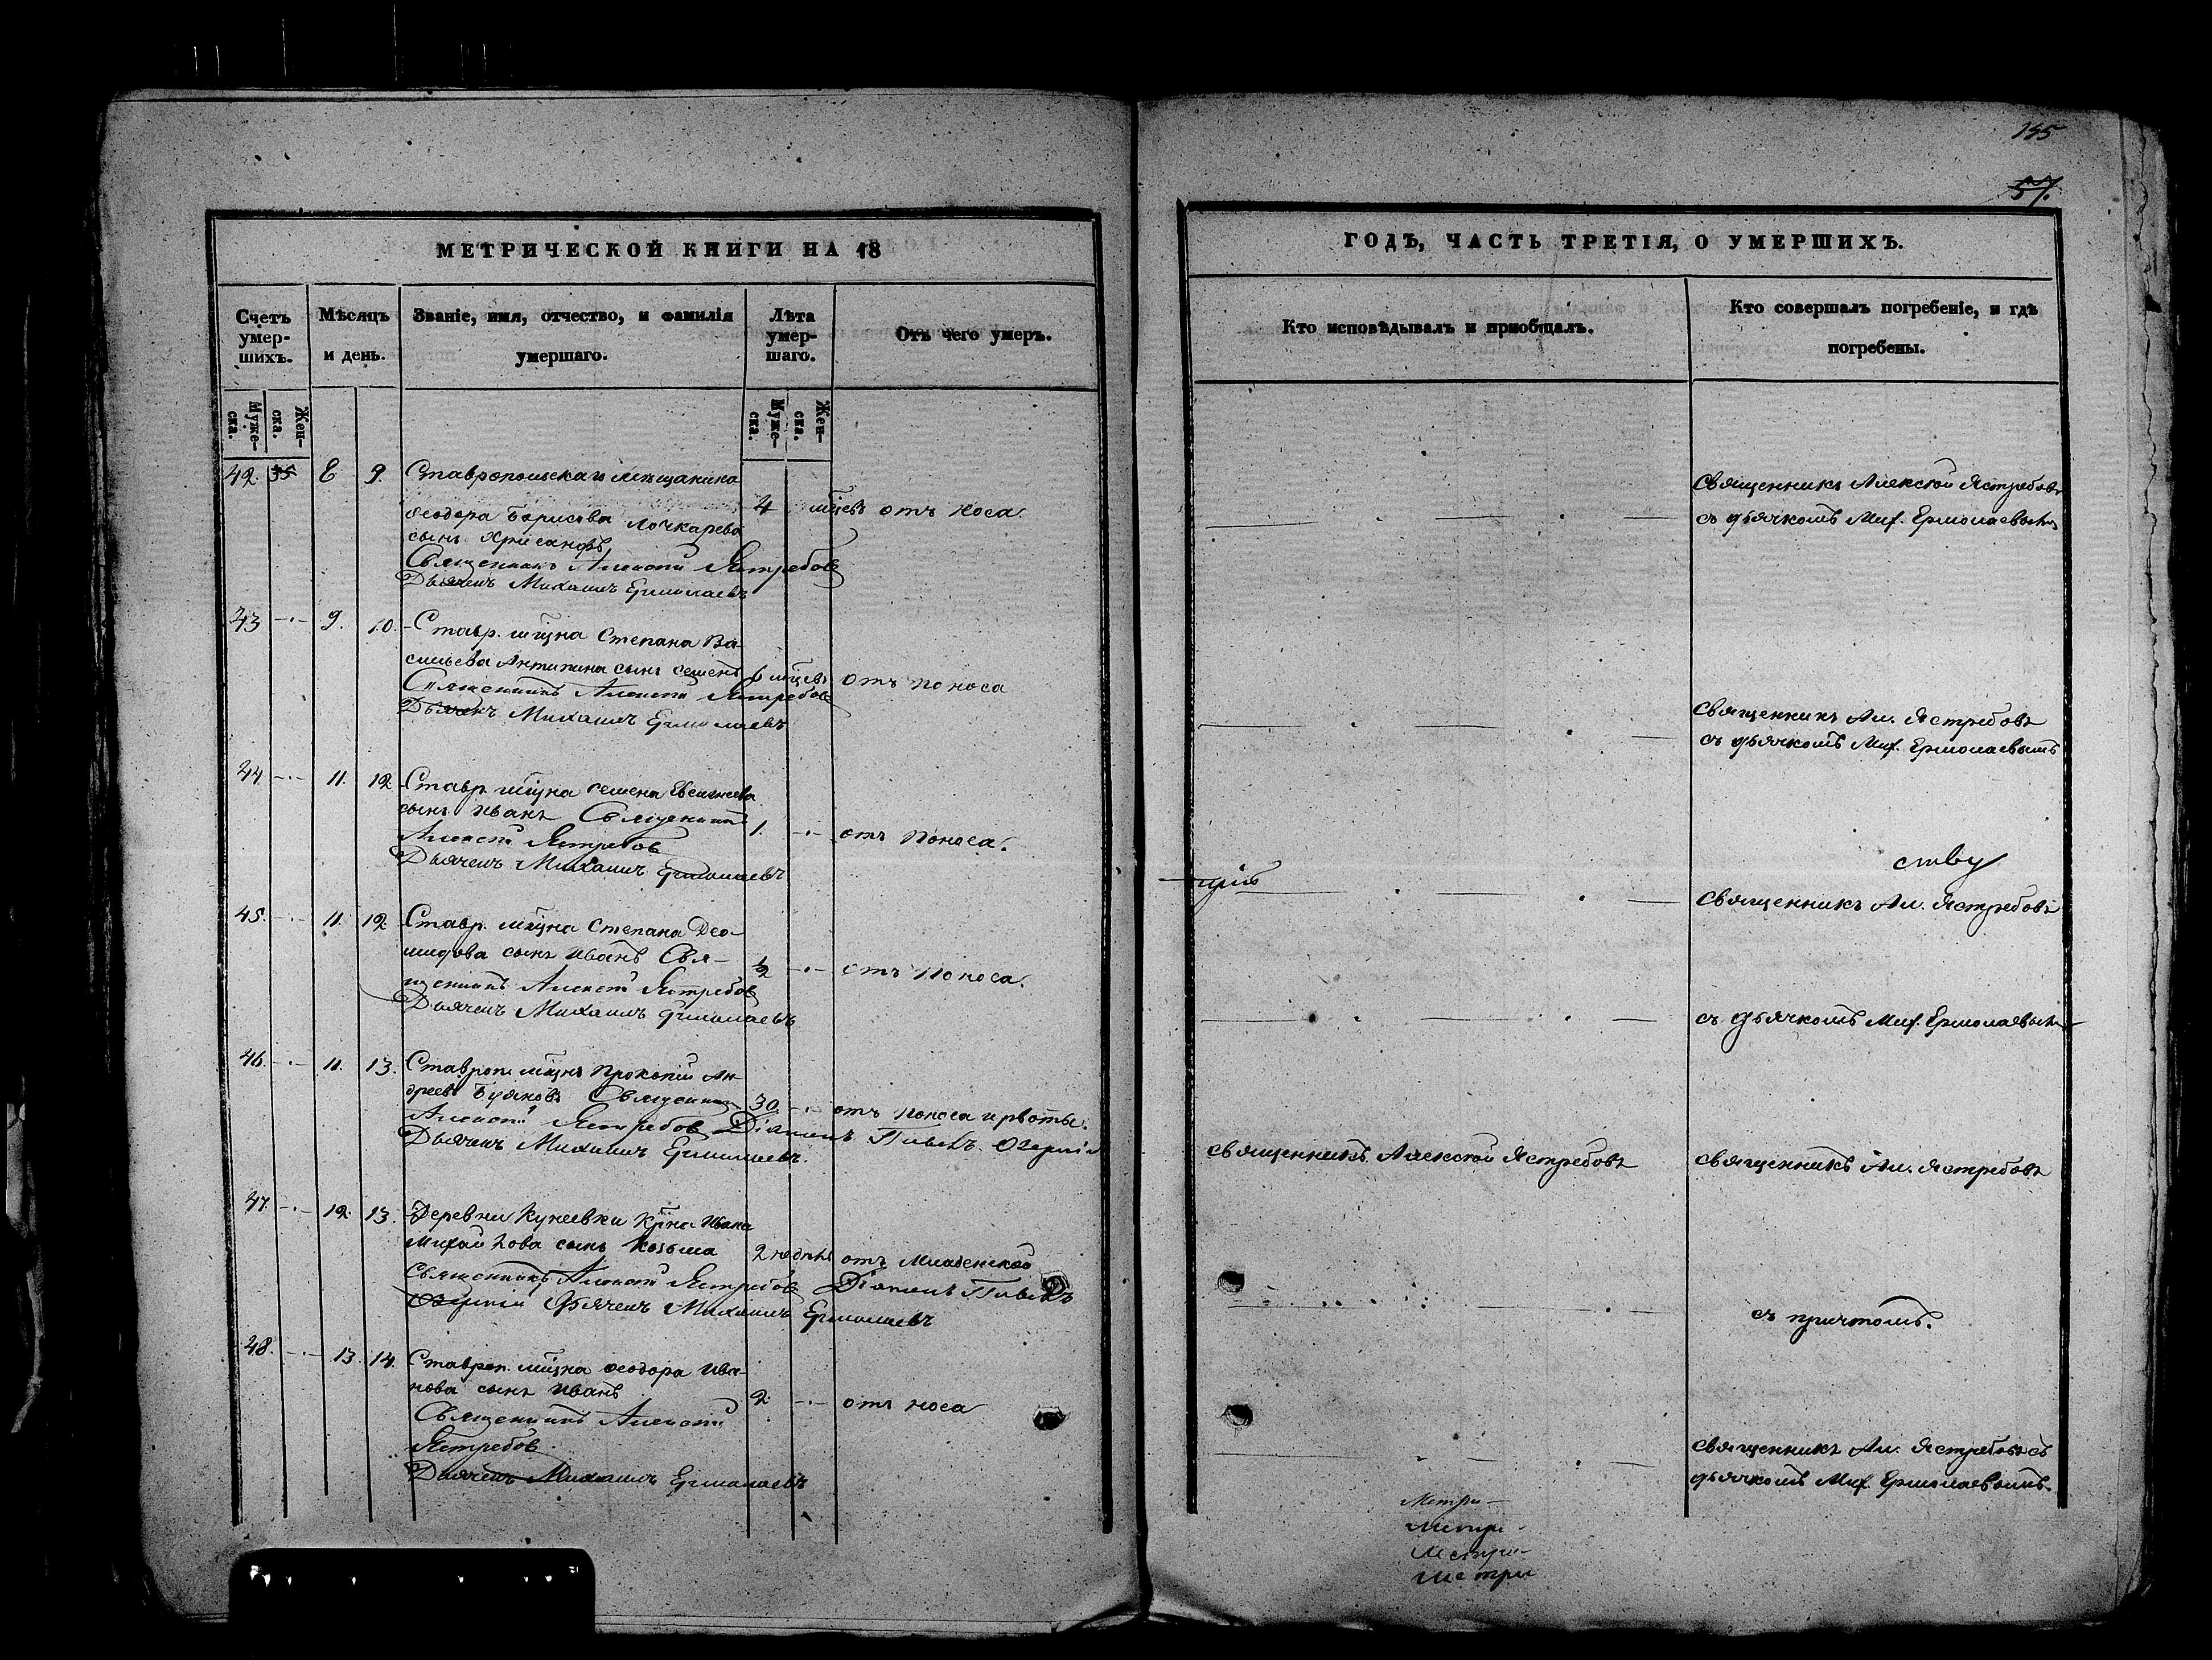 155
57.
МЕТРИЧЕСКОЙ КНИГИ НА 18
Счетъ умер-шихъ.
Мѣсяцъ и день.
Званіе, имя, отчество, и фамилія умершаго.
Лѣта умер-шаго.
Отъ чего умеръ.
Муже-ска.
Жен-ска.
Муже-ска.
Жен-ска.
42. 35 8 9. Ставропольскаго мѣщанина
Ѳеодора Борисова Лочкарева 4 мѣцевъ отъ носа.
сынъ Хрисанфъ
Священникъ Алексѣй Ястребовъ
Дьячекъ Михаилъ Ермолаевъ
43 9. 10. Ставр. мѣщна Степана Ва-
сильева Антипина сынъ Семенъ 6 мѣцевъ отъ поноса
Священникъ Алексѣй Ястребовъ
Дьячекъ Михаилъ Ермолаевъ
44 11. 12 Ставр. мѣщна Семена Евсигнеева
сынъ Иванъ Священникъ 1. отъ поноса.
Алексѣй Ястребовъ
Дьячекъ Михаилъ Ермолаевъ
45. 11. 12 Ставр. мѣщна Степана Део-
мидова сынъ Иванъ Свя- 1/2 отъ поноса.
щенникъ Алексѣй Ястребовъ
Дьячекъ Михаилъ Ермолаевъ
46. 11. 13. Ставроп. мѣщнъ Прокопій Ан-
дреевъ Буяновъ Священникъ 30 отъ поноса и рвоты.
Алексѣй Ястребовъ Діаконъ Павелъ Озерній
Дьячекъ Михаилъ Ермолаевъ.
47. 12. 13. Деревни Кунеевки кр̃на Ивана
Михайлова сынъ Козьма 2 недѣль отъ младенской
Священникъ Алексѣй Ястребовъ Діаконъ Павелъ
Озерній Дьячекъ Михаилъ Ермолаевъ
48. 13. 14. Ставроп. мѣщна Ѳеодора Ива-
нова сынъ Иванъ 2 отъ носа
Священникъ Алексѣй
Ястребовъ
Дьячекъ Михаилъ Ермолаевъ
ГОДЪ, ЧАСТЬ ТРЕТІЯ, О УМЕРШИХЪ.
Кто исповѣдывалъ и приобщалъ.
Кто совершалъ погребеніе, и гдѣ погребены.
Священникъ Алексѣй Ястребовъ
съ дьячкомъ Мих. Ермолаевымъ
Священникъ Ал. Ястребовъ
съ дьячкомъ Мих. Ермолаевымъ
Священникъ Ал. Ястребовъ
съ дьячкомъ Мих. Ермолаевымъ
Священникъ Алексѣй Ястребовъ Священникъ Ал. Ястребовъ
съ причтомъ.
Священникъ Ал. Ястребовъ съ
дьячкомъ Мих. Ермолаевымъ.
Метри-
Метри-
Метри-
Метри